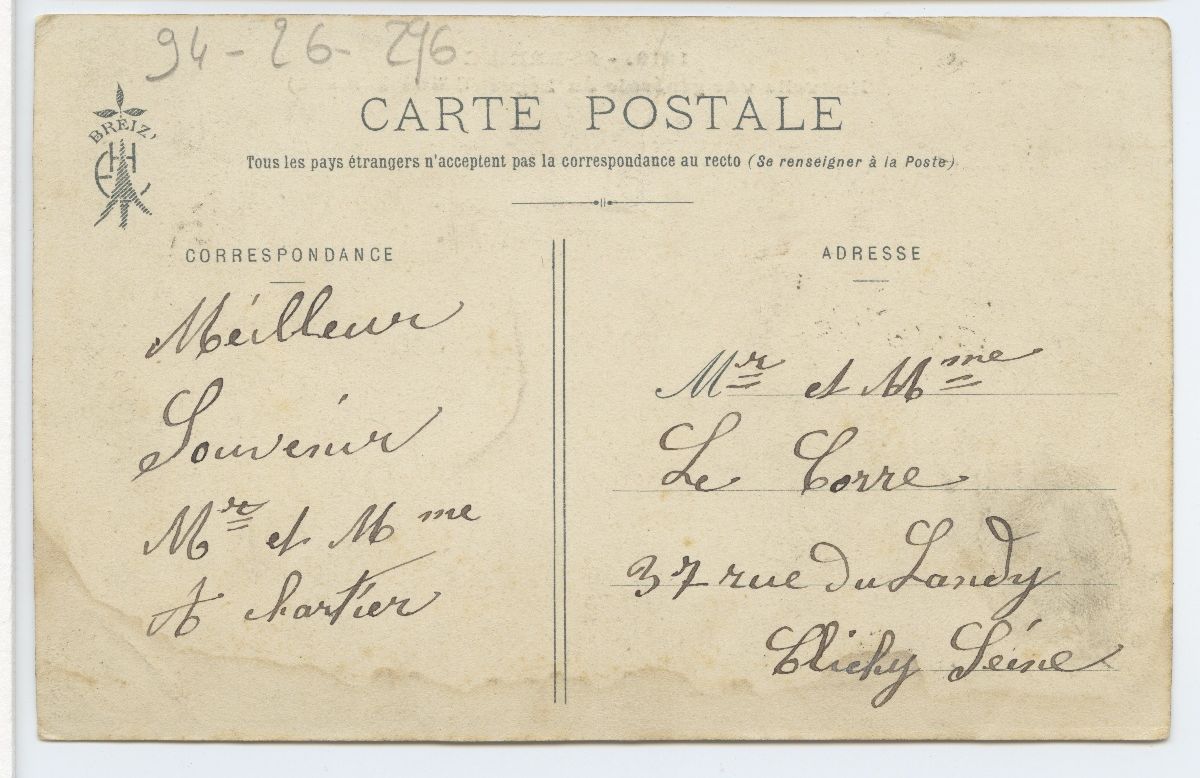 94-26-296
BREIZ
CARTE POSTALE
Tous les pays étrangers n'acceptent pas la correspondance au recto (Se renseigner à la Poste)
CORRESPONDANCE
Méilleur
Souvenir
Mr et Mme
A chartier
ADRESSE
Mr et Mme
Le Corre
37 rue du Landy
Clichy Séine